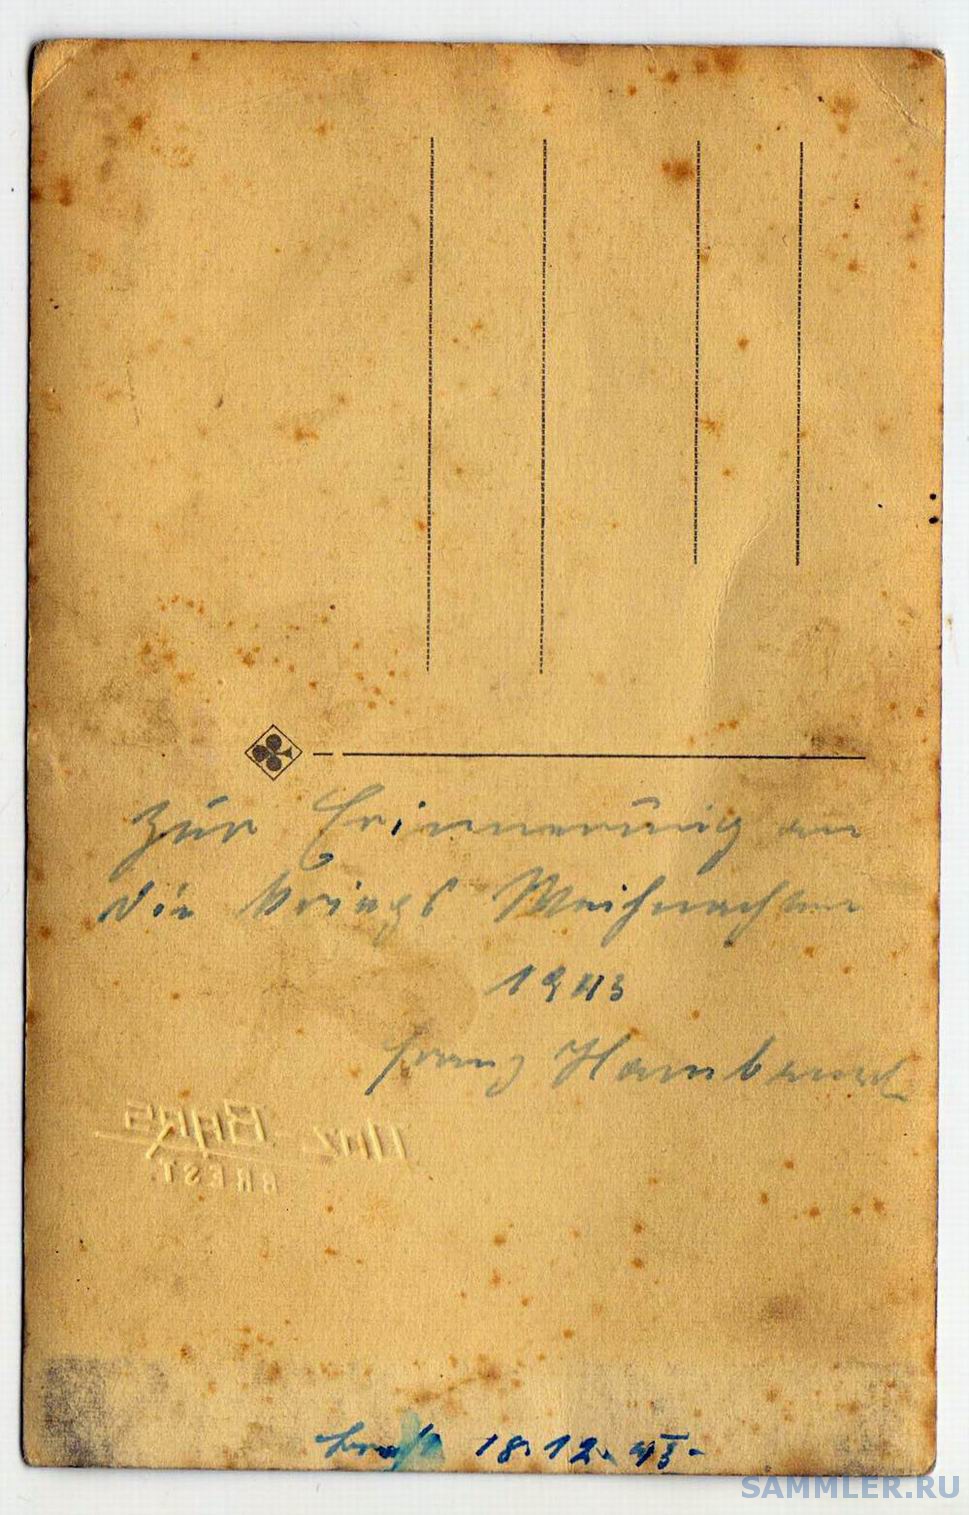 Zur Erinnerung an
die Kriegs Weihnachten
1943
Franz
BARS
BREST.
Brest 18.12.43.
SAMMLER.RU